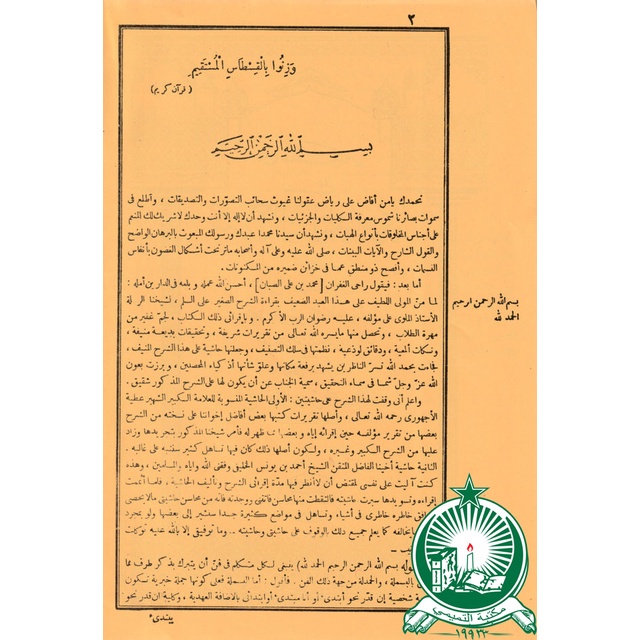 ٢
وَزِنُوا بِالْقِسْطَاسِ الْمُسْتَقِيمِ
(قرآن كريم)
بسم الله الرحمن الرحيم
نحمدك يامن أفاض على رياض عقولنا غيوث سحائب التصوّرات والتصديقات ، وأطلع فى
سموات بصائرنا شموس معرفة الكليات والجزئيات ، ونشهد أن لا إله إلا أنت وحدك لاشريك لك المنعم
على أجناس المخلوقات بأنواع الهبات ، ونشهد أن سيدنا محمدا عبدك ورسولك المبعوث بالبرهان الواضح
والقول الشارح والآيات البينات ، صلى الله عليه وعلى آله وأصحابه ماترنحت أشكال الغصون بأنفاس
النسمات ، وأفصح ذو منطق عما فى خزائن ضميره من المكنونات .
أما بعد : فيقول راجى الغفران [محمد بن على الصبان] ، أحسن الله عمله وبلغه فى الدارين أمله :
لما منّ المولى اللطيف على هذا العبد الضعيف بقراءة الشرح الصغير على السلم ، لشيخنا
الأستاذ الملوى على مؤلفه ، عليه رضوان الرب الأكرم . وبإقرائى ذلك الكتاب ، لجم غفير من
مهرة الطلاب ، وتحصل منها مايسره الله تعالى من تقريرات شريفة ، وتحقيقات بديعة منيفة ،
ونكات ألمعية ، ودقائق لوذعية ، نظمتها فى سلك التصنيف ، وجعلتها حاشية على هذا الشرح المنيف ،
فجاءت بحمد الله تسرّ الناظر بن يشهد برفعة مكانها وعلوّ شأنها أذكياء المحصلين ، وبرزت بعون
الله عزّ وجلّ شما فى سماء التحقيق ، سمية الجناب عن أن يكون لها على الشرح المذكور شقيق .
واعلم أنى وقفت لهذا الشرح على حاشيتين : الأولى الحاشية المنسوبة للعلامة الكبير الشهير عطية
الأجهورى رحمه الله تعالى ، وأصلها تقريرات كتبها بعض أفاضل إخواننا على نسخته من الشرح
بعضها من تقرير مؤلفه حين إقرائه إياه وبعضها مما ظهر له فأمر شيخنا المذكور بتجريدها وزاد
عليها من الشرح الكبير وغيره ، ولكون أصلها ذلك كان فيها تساهل كثير سقته على غالبه .
الثانية حاشية أخينا الفاضل المتقن الشيخ أحمد بن يونس الخليفى وفقنى الله وإياه والمسلمين ، وهذه
كنت آليت على نفسى لمقتض أن لا أنظر فيها مدّة إقرائى الشرح وتأليف الحاشية ، فلما أتممت
إقراءه وتسويدها سبرت حاشيته فالتقطت منها محاسن فاتتنى ووجدته فاته من محاسن حاشيتى مالا يحصى
خاطره خاطرى فى أشياء ، وتساهل فى مواضع كثيرة جدا سنشير إلى بعضها ولو بمجرد
يخالفه كما يعلم جميع ذلك بالوقوف على حاشيتى وحاشيته .. وما توفيقى إلا بالله عليه توكلت
(بسم الله الرحمن الرحيم الحمد لله) ينبغى لكل متكلم فى فنّ أن يتبرك بذكر طرف مما
بالبسملة ، والحمدلة من جهة ذلك الفن . فأقول : أما البسملة فعل كونها جملة خبرية تكون
شخصية إن قدر نحو أبتدئ أو أنا مبتدئ أو ابتدائى بالاضافة العهدية ، وكلية إن قدر نحو
يبتدئ
بسم الله الرحمن الرحيم
الحمد لله
مكتبة التميمي
١٩٩٣